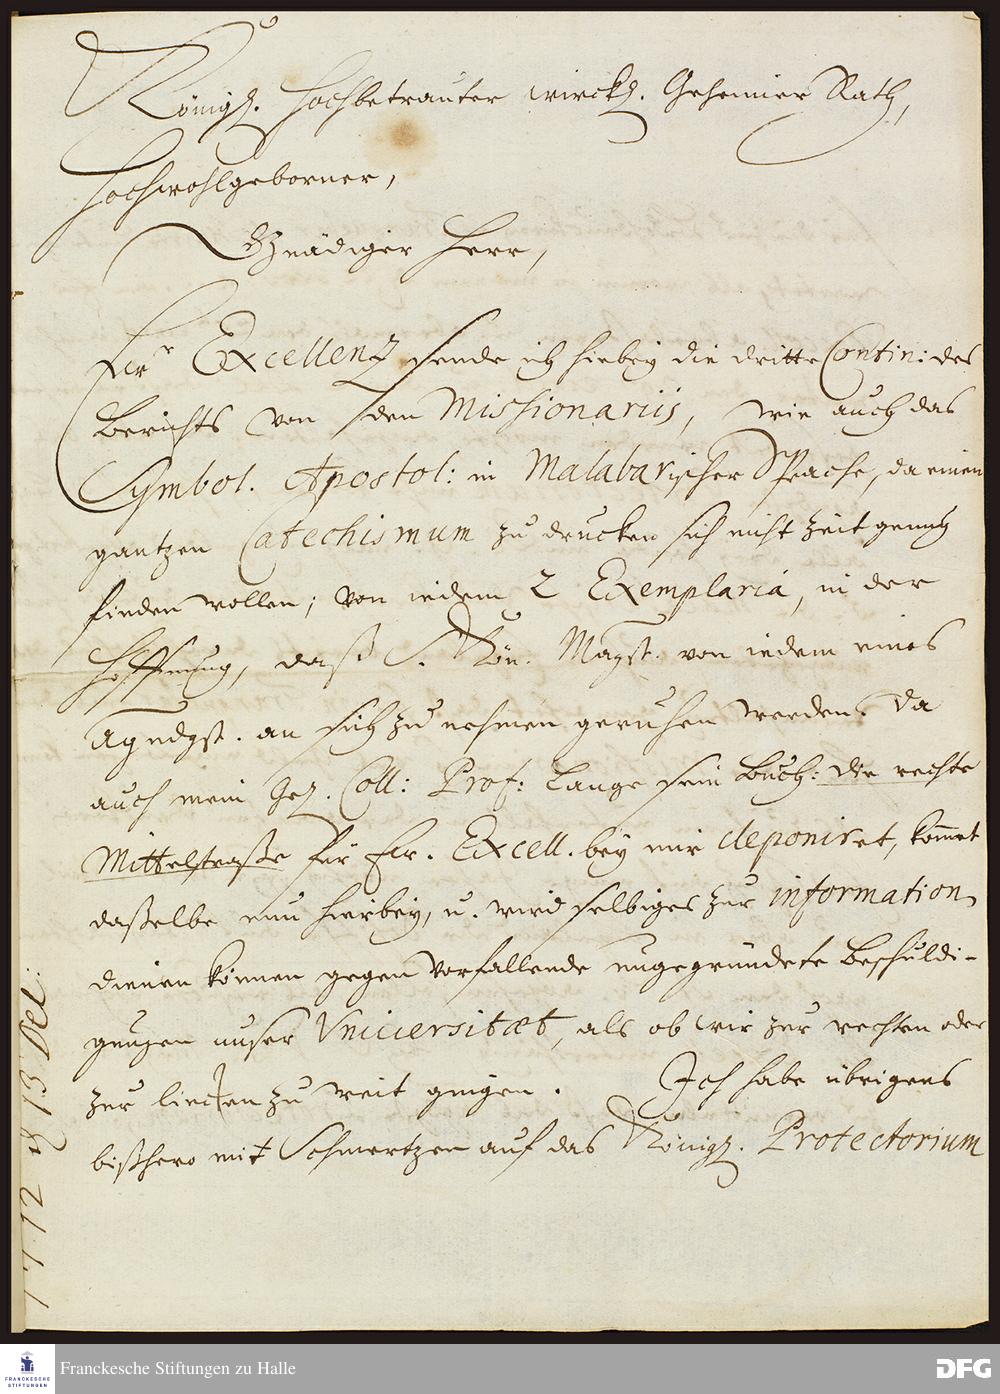 Königl. Hochbetrauter wirckl. Geheimer Rath,
Hochwohlgeborner,
Gnädiger Herr,
Ewr Excellenz sende ich hiebey die dritte Contin: des
Berichts von den Missionariis, wie auch das
Symbol. Apostol: in Malabarischer Sprache, da einen
gantzen Catechismum zu drucken sich nicht Zeit genug
finden wollen; von iedem 2 Exemplaria, in der
Hoffnung, daß S. Kön. Mayst. von iedem eines
allergndgst. an sich zu nehmen geruhen werden. Da
auch mein Coll: Prof: Lange sein Buch: die rechte
Mittelstraße für Ew. Excell. bey mir deponiret, kommet
daßelbe nun hierbey, u. wird selbiges zur information
dienen können gegen vorfallende ungegründete Beschuldi-
gungen unser Universitæt, als ob wir zur rechten oder
zur lincken zu weit gingen. Ich habe übrigens
bißhero mit Schmertzen auf das Königl. Protectorium
1712 d 13 Del:
Franckesche Stiftungen zu Halle
FRANCKESCHE
STIFTUNGEN
DFG